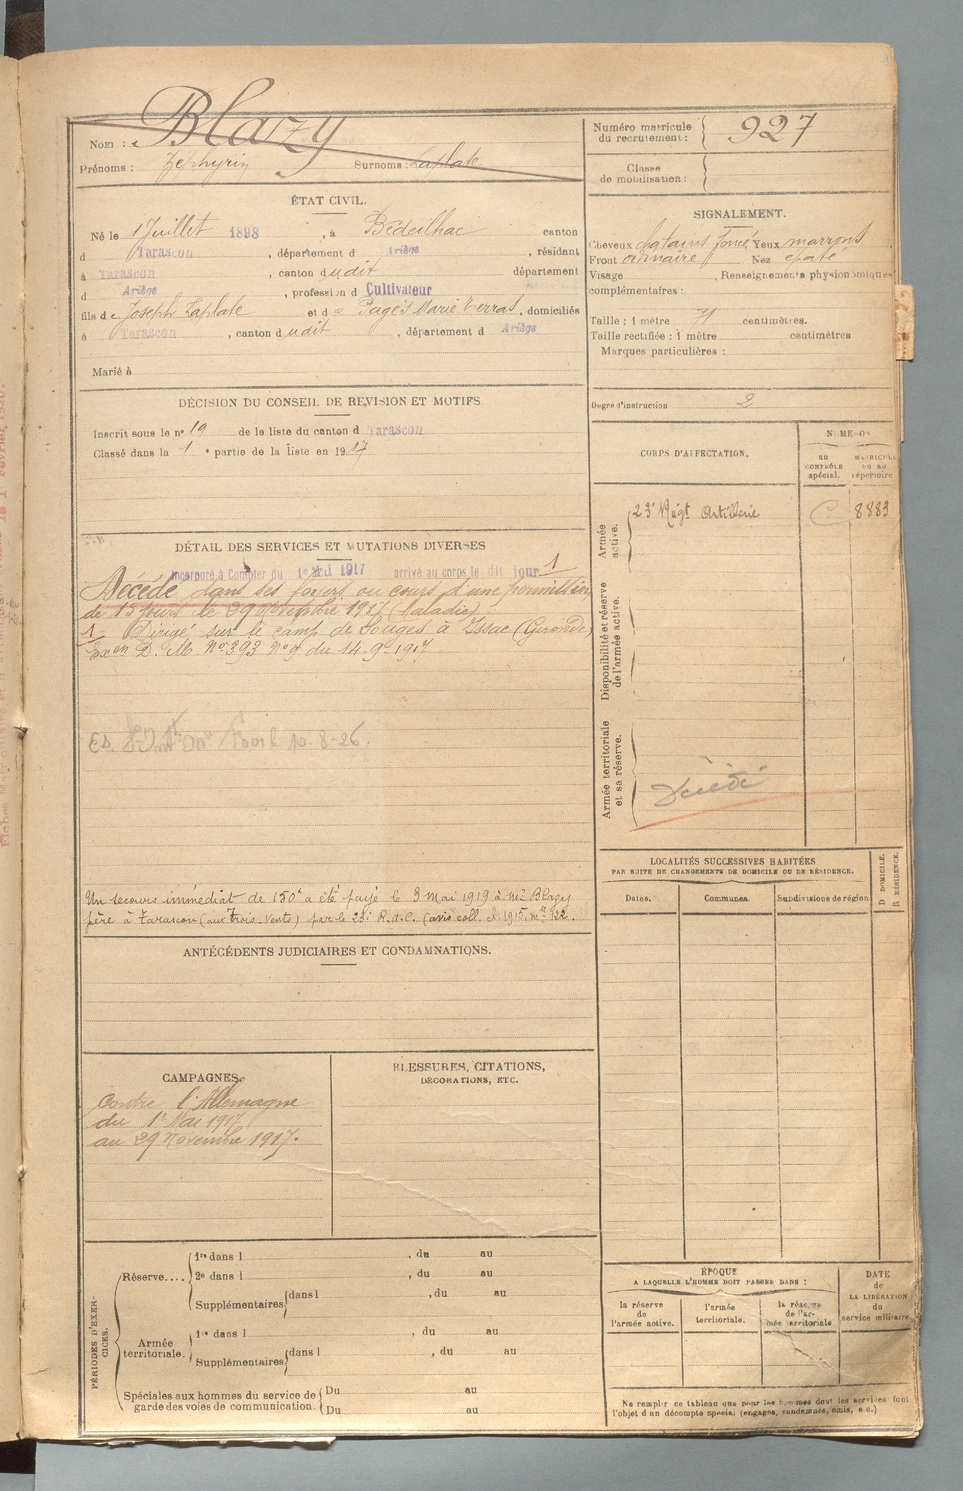 Nom : Blazy
Prénoms : Zéphyrin Surnoms : Laplate
Numéro matricule du recrutement : 927
Classe de mobilisation :
ÉTAT CIVIL.
Né le 1 Juillet 1898, à Bédeilhac canton
d Tarascon, département d Ariège, résidant
à Tarascon, canton dudit département
d Ariège, profession d Cultivateur
fils de Joseph Laplate et de Pagès Marie, domiciliés
à Tarascon, canton dudit, département d Ariège
Marié à
DÉCISION DU CONSEIL DE REVISION ET MOTIFS
Inscrit sous le n° 19 de la liste du canton d Tarascon
Classé dans la 1e partie de la liste en 1917
DÉTAIL DES SERVICES ET MUTATIONS DIVERSES
Incorporé à Compter du 1e Mai 1917 arrivé au corps le dit jour 1
Décédé dans ses foyers au cours d'une permission
de 15 jours le 29 Novembre 1917 (Maladie)
1 Dirigé sur le camp de Souges à Issac (Gironde)
Exon D. M. No 393 No 9 du 14 9e 1917
Un secours immédiat de 150f a été payé le 3 Mai 1919 à Mr Blazy
père à Tarascon (aux Trois-Vents) par le 23e R.a.C. (avis coll. d. 1915. 
ANTÉCÉDENTS JUDICIAIRES ET CONDAMNATIONS.
CAMPAGNES.
Contre l'Allemagne
du 1e Mai 1917
au 29 Novembre 1917.
BLESSURES, CITATIONS,
DÉCORATIONS, ETC.
PÉRIODES D'EXERCICES.
Réserve....
1re dans l , du au
2e dans l , du au
Supplémentaires dans l , du au
Armée territoriale.
1re dans l , du au
Supplémentaires dans l , du au
Spéciales aux hommes du service de garde des voies de communication.
Du au
Du au
SIGNALEMENT.
Cheveux chatains foncé Yeux marrons
Front ordinaire Nez épaté
Visage , Renseignements physionomiques
complémentaires :
Taille : 1 mètre 71 centimètres.
Taille rectifiée : 1 mètre centimètres
Marques particulières :
Degré d'instruction 2
CORPS D'AFFECTATION.
NUMÉROS
AU CONTRÔLE spécial.
MATRICULE OU AU répertoire
Armée active.
23e Régt Artillerie C 8883
Disponibilité et réserve de l'armée active.
Armée territoriale et sa réserve.
Décédé
LOCALITÉS SUCCESSIVES HABITÉES
PAR SUITE DE CHANGEMENTS DE DOMICILE OU DE RÉSIDENCE.
Dates. Communes. Subdivisions de région D. DOMICILE. R. RÉSIDENCE.
ÉPOQUE
A LAQUELLE L'HOMME DOIT PASSER DANS :
la réserve de l'armée active.
l'armée territoriale.
la réserve de l'armée territoriale
DATE de LA LIBÉRATION du service militaire.
Ne remplir ce tableau que pour les hommes dont les services font
l'objet d'un décompte spécial (engagés, condamnés, omis, etc.)